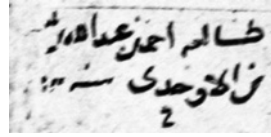 طالعه احمد بن عبدالله
بن الاوحدى سنه